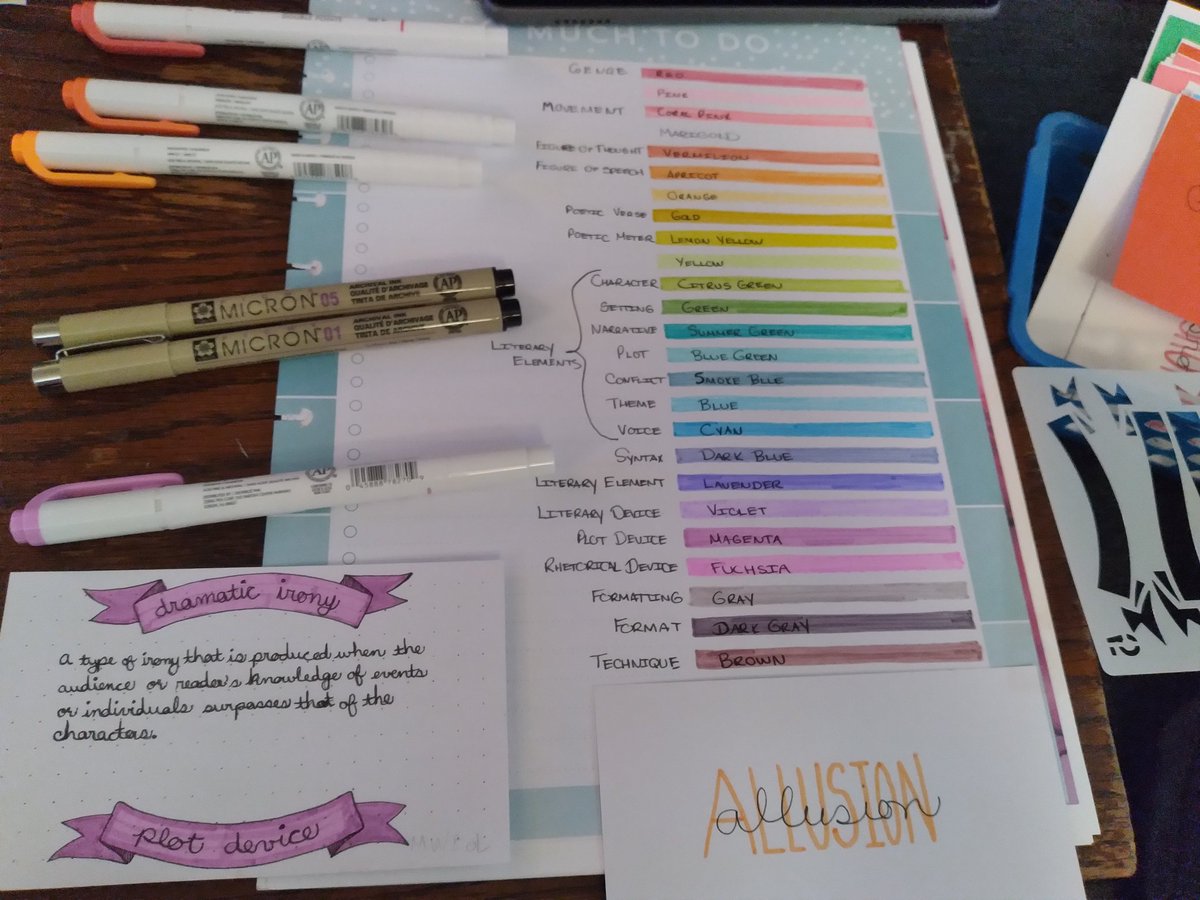 MUCH TO DO
GENRE RED
PINK
MOVEMENT CORAL PINK
MARIGOLD
FIGURE OF THOUGHT VERMILION
FIGURE OF SPEECH APRICOT
ORANGE
POETIC VERSE GOLD
POETIC METER LEMON YELLOW
YELLOW
CHARACTER CITRUS GREEN
SETTING GREEN
NARRATIVE SUMMER GREEN
LITERARY ELEMENTS
PLOT BLUE GREEN
CONFLICT SMOKE BLUE
THEME BLUE
VOICE CYAN
SYNTAX DARK BLUE
LITERARY ELEMENT LAVENDER
LITERARY DEVICE VIOLET
PLOT DEVICE MAGENTA
RHETORICAL DEVICE FUCHSIA
FORMATTING GRAY
FORMAT DARK GRAY
TECHNIQUE BROWN
AP
AP
MICRON 05 ARCHIVAL INK
QUALITÉ D'ARCHIVAGE
TINTA DE ARCHIVE
AP
MICRON 01 ARCHIVAL INK
QUALITÉ D'ARCHIVAGE
TINTA DE ARCHIVE
AP
AP
dramatic irony
a type of irony that is produced when the
audience or reader's knowledge of events
or individuals surpasses that of the
characters.
Plot device
ALLUSION
allusion